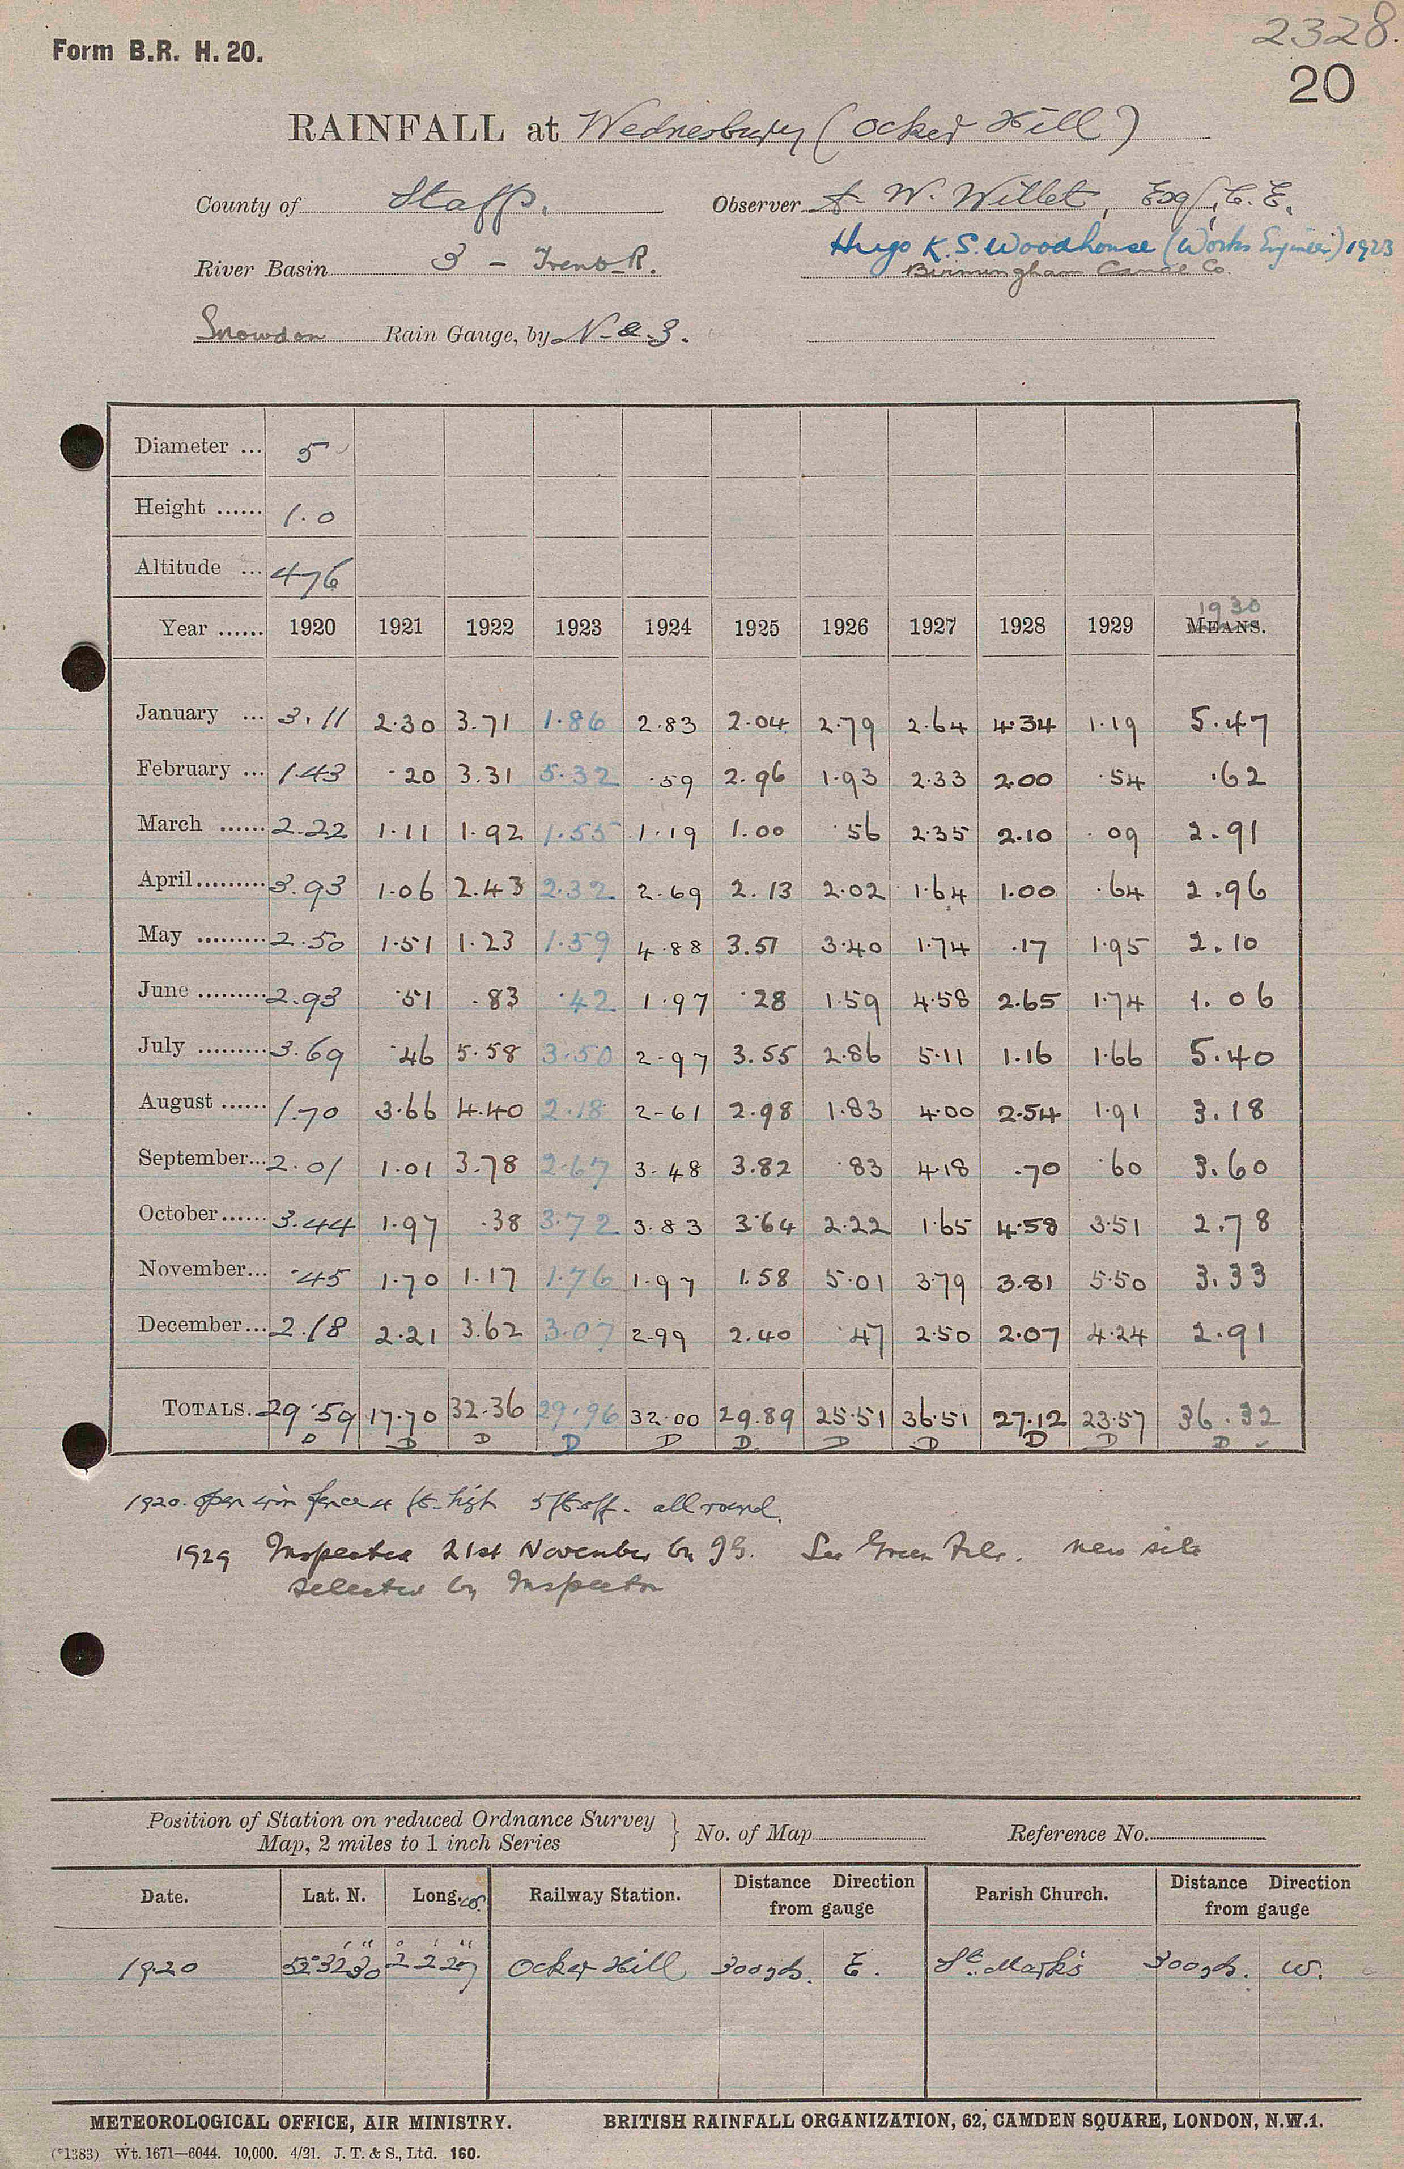 2328.
Form B.R. H. 20.
20
RAINFALL at Wednesbury (Ocker Hill)
County of Staffs. Observer A. W. Willet, Esq, C. E.
Hugo K. S. Woodhouse (Works Engineer) 1923
River Basin 3 - Trent R. Birmingham Canal Co.
Snowdon Rain Gauge, by N & Z.
Diameter ... 5
Height ...... 1.0
Altitude ... 476
1930
Year ...... 1920 1921 1922 1923 1924 1925 1926 1927 1928 1929 MEANS.
January ... 3.11 2.30 3.71 1.86 2.83 2.04 2.79 2.64 4.34 1.19 5.47
February ... 1.43 .20 3.31 5.32 .59 2.96 1.93 2.33 2.00 .54 .62
March ...... 2.22 1.11 1.92 1.55 1.19 1.00 .56 2.35 2.10 .09 2.91
April......... 3.93 1.06 2.43 2.32 2.69 2.13 2.02 1.64 1.00 .64 2.96
May ......... 2.50 1.51 1.23 1.59 4.88 3.51 3.40 1.74 .17 1.95 2.10
June ......... 2.93 .51 .83 .42 1.97 .28 1.59 4.58 2.65 1.74 1.06
July ......... 3.69 .46 5.58 3.50 2.97 3.55 2.86 5.11 1.16 1.66 5.40
August ...... 1.70 3.66 4.40 2.18 2.61 2.98 1.83 4.00 2.54 1.91 3.18
September... 2.01 1.01 3.78 2.67 3.48 3.82 .83 4.18 .70 .60 3.60
October...... 3.44 1.97 .38 3.72 3.83 3.64 2.22 1.65 4.58 3.51 2.78
November... .45 1.70 1.17 1.76 1.97 1.58 5.01 3.79 3.81 5.50 3.33
December... 2.18 2.21 3.62 3.07 2.99 2.40 .47 2.50 2.07 4.24 2.91
TOTALS. 29.59 17.70 32.36 29.96 32.00 29.89 25.51 36.51 27.12 23.57 36.32
D D D D D D D D D D D
1920. open iron fence 4 ft. high 5 ft off. all round.
1929 Inspected 21st November by JG. See Green File. new site
selected by Inspector
Position of Station on reduced Ordnance Survey
Map, 2 miles to 1 inch Series } No. of Map Reference No.
Date. Lat. N. Long. W. Railway Station. Distance from gauge Direction Parish Church. Distance from gauge Direction
1920 52° 32' 30" 2° 2' 27" Ocker Hill 300 yds. E. St. Mark's 300 yds. W.
METEOROLOGICAL OFFICE, AIR MINISTRY. BRITISH RAINFALL ORGANIZATION, 62, CAMDEN SQUARE, LONDON, N.W.1.
(*1383) Wt. 1671—6044. 10,000. 4/21. J. T. & S., Ltd. 160.